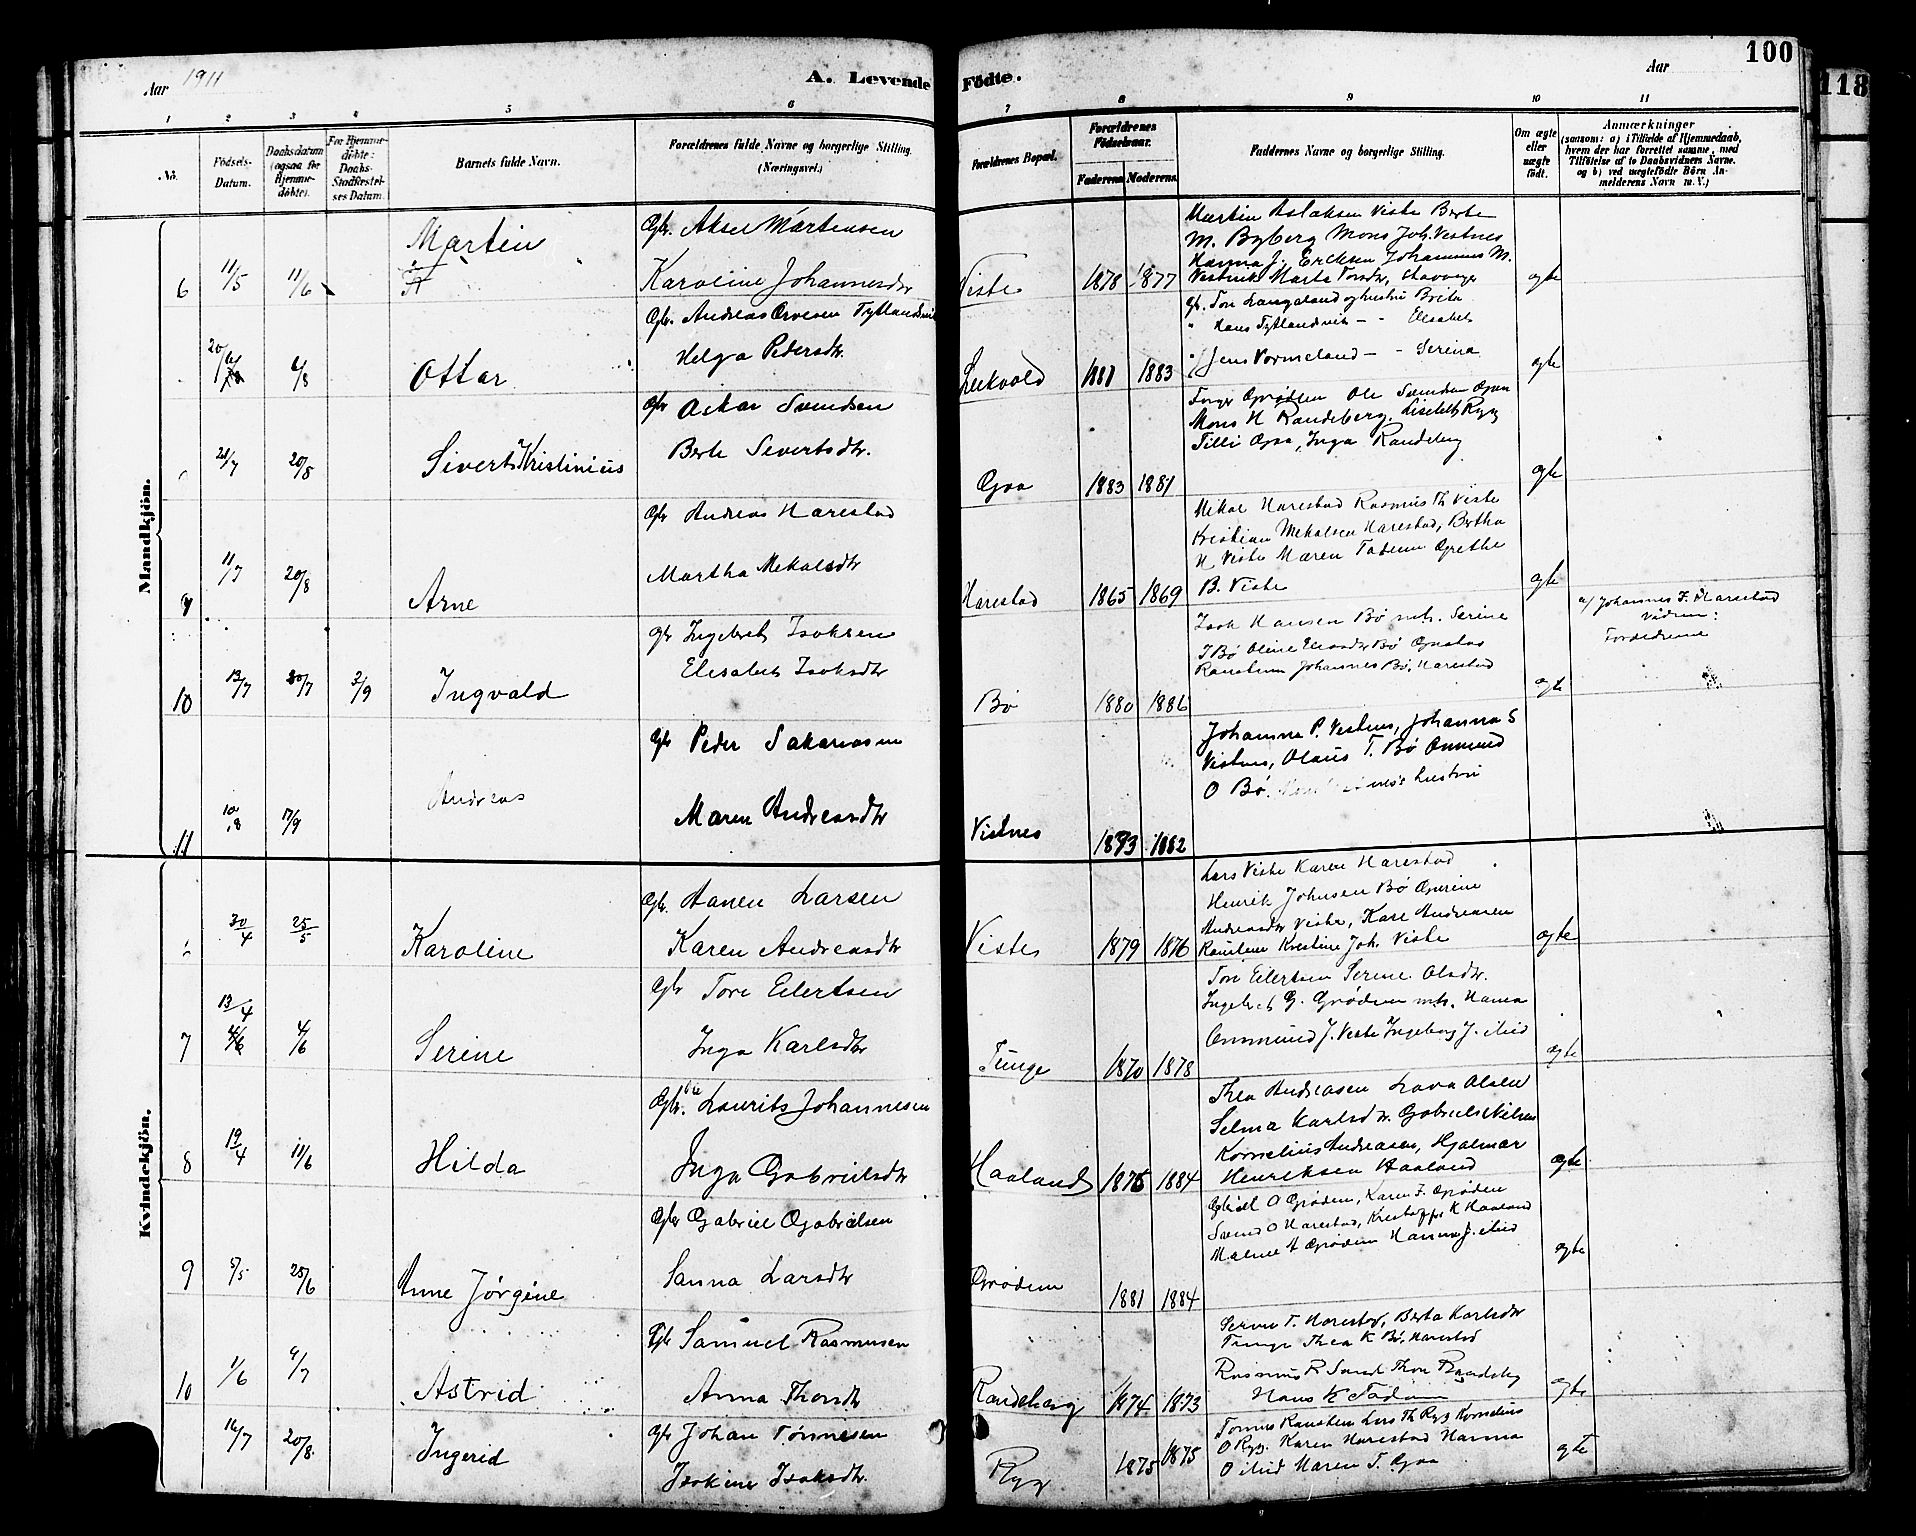 Aar 1911
A. Levende Födte.
Aar
100
118
1 2 3 4 5 6 7 8 9 10 11
No.
Födsels-Datum.
Daabsdatum (ogsaa for Hjemmedöbte).
For Hjemmedöbte: Daabs-Stadfæstelses Datum.
Barnets fulde Navn.
Forældrenes fulde Navne og borgerlige Stilling. (Næringsvei.)
Forældrenes Bopæl.
Forældrenes Födselsaar.
Faderens. Moderens.
Faddernes Navne og borgerlige Stilling.
Om ægte eller uægte födt.
Anmærkninger
(saasom: a) i Tilfælde af Hjemmedaab, hvem der har forrettet samme, med Tilföielse af to Daabsvidners Navne, og b) ved uægtefödte Börn Anmelderens Navn m. V.)
Mandkjön.
6 11/5 11/6 Martin
Gbr. Aksel Martensen
Karoline Johannesdtr
Viste 1878 1877
Martin Aslaksen Viste Berte
M. Byberg Mons Joh. Vestnes
Hanna J. Eriksen Johannes M.
Marta Stavanger
ægte
20/6 6/8 Ottar
Gbr. Andreas
Helga Pedersdtr.
1883
gb. Tore Langeland og hustru Brita
" Hans Tytlandsvik - - Elisabet
" Jens Vormeland - - Serina
ægte
21/7 20/8 Sivert Kristinius
Gbr Oskar Svendsen
Berte Severtsdtr.
Goa 1883 1881
Grødem Ole Svendsen Goa
Mons H Randeberg, Lisebet Ryg
Tilli Goa, Inga Randeberg
ægte
9 11/7 20/8 Arne
Gbr Andreas Harestad
Martha Mekalsdtr
Harestad 1865 1869
Mekal Harestad Rasmus Th Viste
Kristian Mekalsen Harestad, Bertha
H Viste Maren Tadem Grethe
B. Viste
ægte
10 12/7 30/7 3/9 Ingvald
Gbr Ingebret Isaksen
Elisabet Isaksdtr
Bø 1880 1886
Isak Hansen Bø mh. Serine
I Bø Oline Bø Gustav
Johannes Bø, Harestad
ægte
a/ Johannes F. Harestad
Vidner:
Forældrene
11 10/8 17/9 Andreas
Gbr Peder Sakariasen
Maren Andreasdtr
Vistnes 1882
Johanna P. Vistnes, Johanna S
Vistnes, Olaus T. Bø Ommund
O Bø hustru
Kvindekjön.
30/4 25/5 Karoline
Gbr. Hanen Larsen
Karen Andreasdtr
Viste 1879 1876
Lars Viste Karen Harestad
Henrik Johnsen Bø Gurine
Andreasdtr Viste, Karl Andreasen
Kristine Joh. Viste
ægte
7 13/4 4/6 Serine
Gbr Tore Eilertsen
Inga Karlsdtr
Tunge 1870 1878
Tore Eilertsen Serine Olsdtr.
Ingebret G. Grødem mh. Hanna
Ommund J. Viste Ingeborg J. ibid
ægte
8 19/4 11/6 Hilda
Gbr. Ole Laurits Johannesen
Inga Gabrielsdtr
Haaland 1876 1884
Thea Andreasen Lava Olsen
Selma Karlsdtr. Gabriel Nilsen
Kornelius Andreasen, Hjalmar
Henriksen Haaland
ægte
9 5/5 25/6 Anne Jørgine
Gbr Gabriel Gabrielsen
Sanna Larsdtr
Grødem 1881 1884
O Grødem, Karen F. Grødem
Svend O Harestad, Kristoffer K Haaland
Malene A Grødem Hanna J. ibid
ægte
10 1/6 9/7 Astrid
Gbr Samuel Rasmussen
Anna Thordtr
Randeberg 1874 1873
Serine T. Harestad, Berta Karlsdtr
Tunge Thea K Bø, Harestad
Rasmus R Sand Thor Randeberg
Hans K Tadem
ægte
16/7 20/8 Ingerid
Gbr Johan Tønnesen
Isakine Isaksdtr.
Ryg 1875 1875
Tønnes Lars Th Ryg Kornelius
O Ryg. Karen Harestad Hanna
O ibid Maren T. Goa
ægte